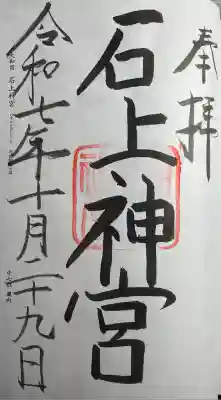 奉拝
石上神宮
令和七年十月二十九日